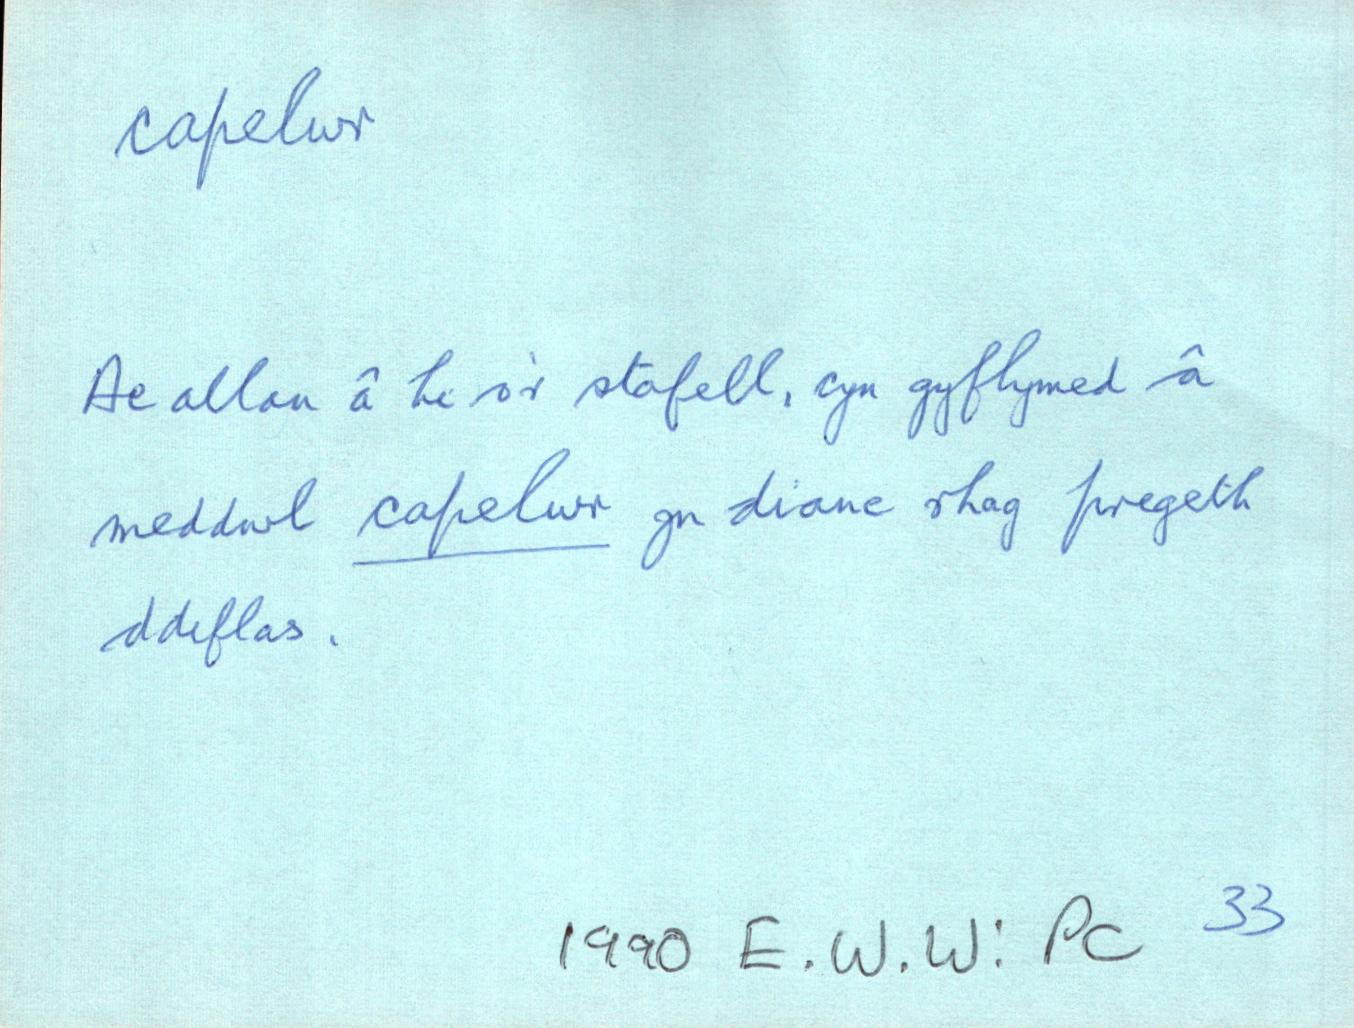 capelwr
Ac allan â hi o'r stafell, cyn gyflymed â
meddwl capelwr yn dianc rhag pregeth
ddiflas.
1990 E.W.W: PC 33